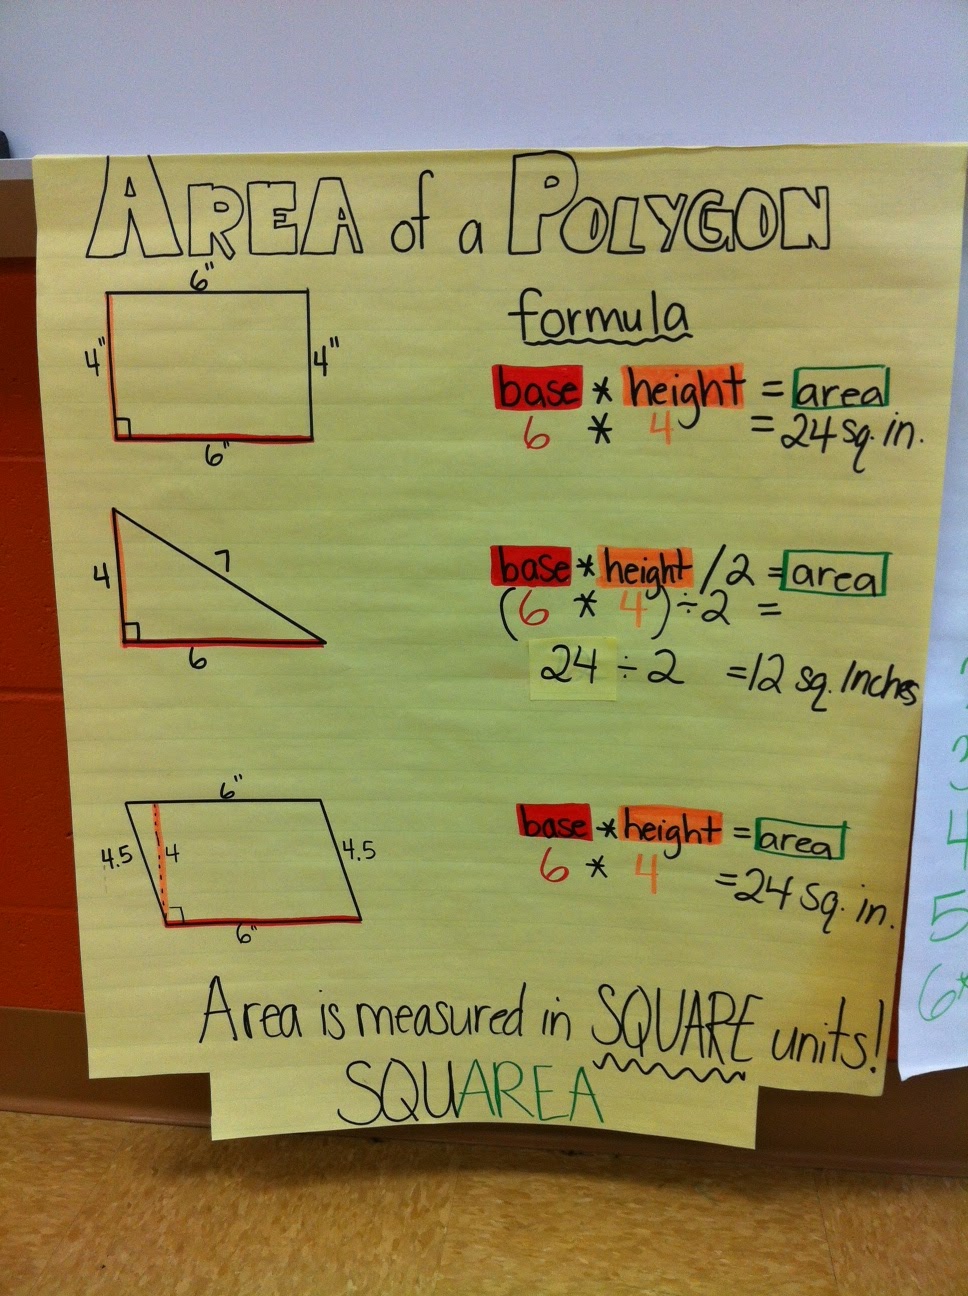 AREA of a POLYGON
6"
4"
4"
6"
formula
base * height = area
6 * 4 = 24 sq. in.
4
7
6
base * height / 2 = area
(6 * 4) ÷ 2 =
24 ÷ 2 = 12 sq. Inches
6"
4.5
4
4.5
6"
base * height = area
6 * 4 = 24 sq. in.
Area is measured in SQUARE units!
SQUAREA
3
4
5
6*